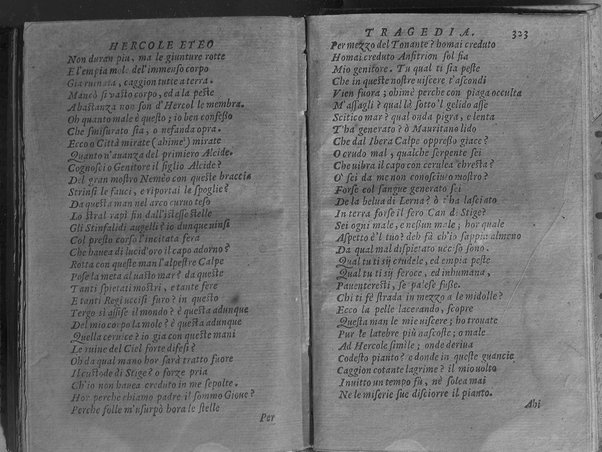 HERCOLE ETEO
Non duran piu, ma le giunture rotte
E l'empia mole dell'immenso corpo
Gia ruinata, caggion tutte a terra.
Mancò sì vasto corpo, ed a la peste
Abastanza non son d'Hercol le membra.
Oh quanto male è questo; io ben confesso
Che smisurato sia, o nefanda opra.
Ecco o Città mirate (ahime') mirate
Quanto n'auanza del primiero Alcide.
Cognosci o Genitore il figlio Alcide?
Del gran mostro Nemèo con queste braccia
Strinsi le fauci, e riportai le spoglie?
Da questa man nel arco curuo teso
Lo stral rapì fin dall'istesse stelle
Gli Stinfalidi augelli? io dunque uinsi
Col presto corso l'incitata fera
Che bauea di lucid'oro il capo adorno?
Rotta con queste man l'alpestre Calpe
Pose la meta al uasto mar? da queste
Tanti spietati mostri, e tante fere
E tanti Regi uccisi furo? in questo
Tergo si assise il mondo? è questa adunque
Del mio corpo la mole? è questa adunque
Quella ceruice? io gia con queste mani
Le ruine del Ciel forte difesi?
Oh da qual mano hor sarà tratto fuore
Il custode di Stige? o forze pria
Ch'io non bauea creduto in me sepolte.
Hor perche chiamo padre il sommo Gioue?
Perche folle m'usurpò hora le stelle
Per
TRAGEDIA. 323
Per mezzo del Tonante? homai creduto
Homai creduto Anfitrion sol sia
Mio genitore. Tu qual ti sia peste
Che in queste nostre uiscere t'ascondi
Vien fuora; ohime perche con piaga occulta
M'assagli? qual là sotto'l gelido asse
Scitico mar? qual onda pigra, e lenta
T'ha generato? ò Mauritano lido
Che dal Ibera Calpe oppresto giace?
O crudo mal, qualche serpente sei
Che uibra il capo con cerulea cresta?
O' sei da me non conosciuto mostro?
Forse col sangue generato sei
De la belua di Lerna? ò t'ha lasciato
In terra forse il fero Can di Stige?
Sei ogni male, e nessun male; hor quale
Aspetto è'l tuo? deh fà ch'io sappia almeno
Da qual mal dispietato ucciso sono.
Qual tu ti sij crudele, ed empia peste
Qual tu ti sij feroce, ed inhumana,
Pauenteresti, se palese fusse.
Chi ti fè strada in mezzo a le midolle?
Ecco la pelle lacerando, scopre
Questa man le mie uiscere; ho trouate
Pur le latebre più nascoste; o male
Ad Hercole simile; onde deriua
Codesto pianto? e donde in queste guancie
Caggion cotante lagrime? il mio uolto
Inuitto un tempo fù, nè solea mai
Ne le miserie sue disciorre il pianto.
Ahi